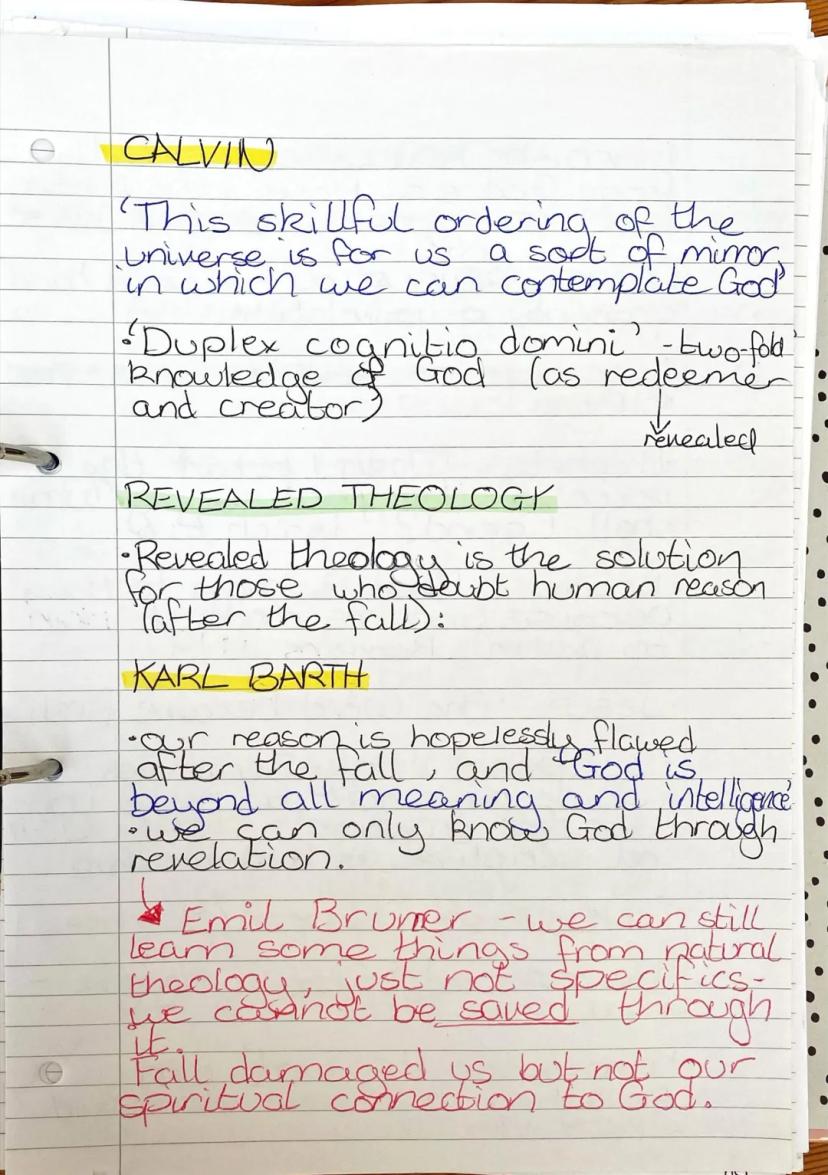 CALVIN
'This skillful ordering of the
universe is for us a sort of mirror,
in which we can contemplate God'
•'Duplex cognitio domini' - two-fold'
knowledge of God (as redeemer
and creator)
revealed
REVEALED THEOLOGY
•Revealed theology is the solution
for those who doubt human reason
(after the fall):
KARL BARTH
•our reason is hopelessly flawed
after the fall, and "God is
beyond all meaning and intelligence'
•we can only know God through
revelation.
Emil Bruner - we can still
learn some things from natural
theology, just not specifics-
we cannot be saved through
it.
Fall damaged us but not our
spiritual connection to God.